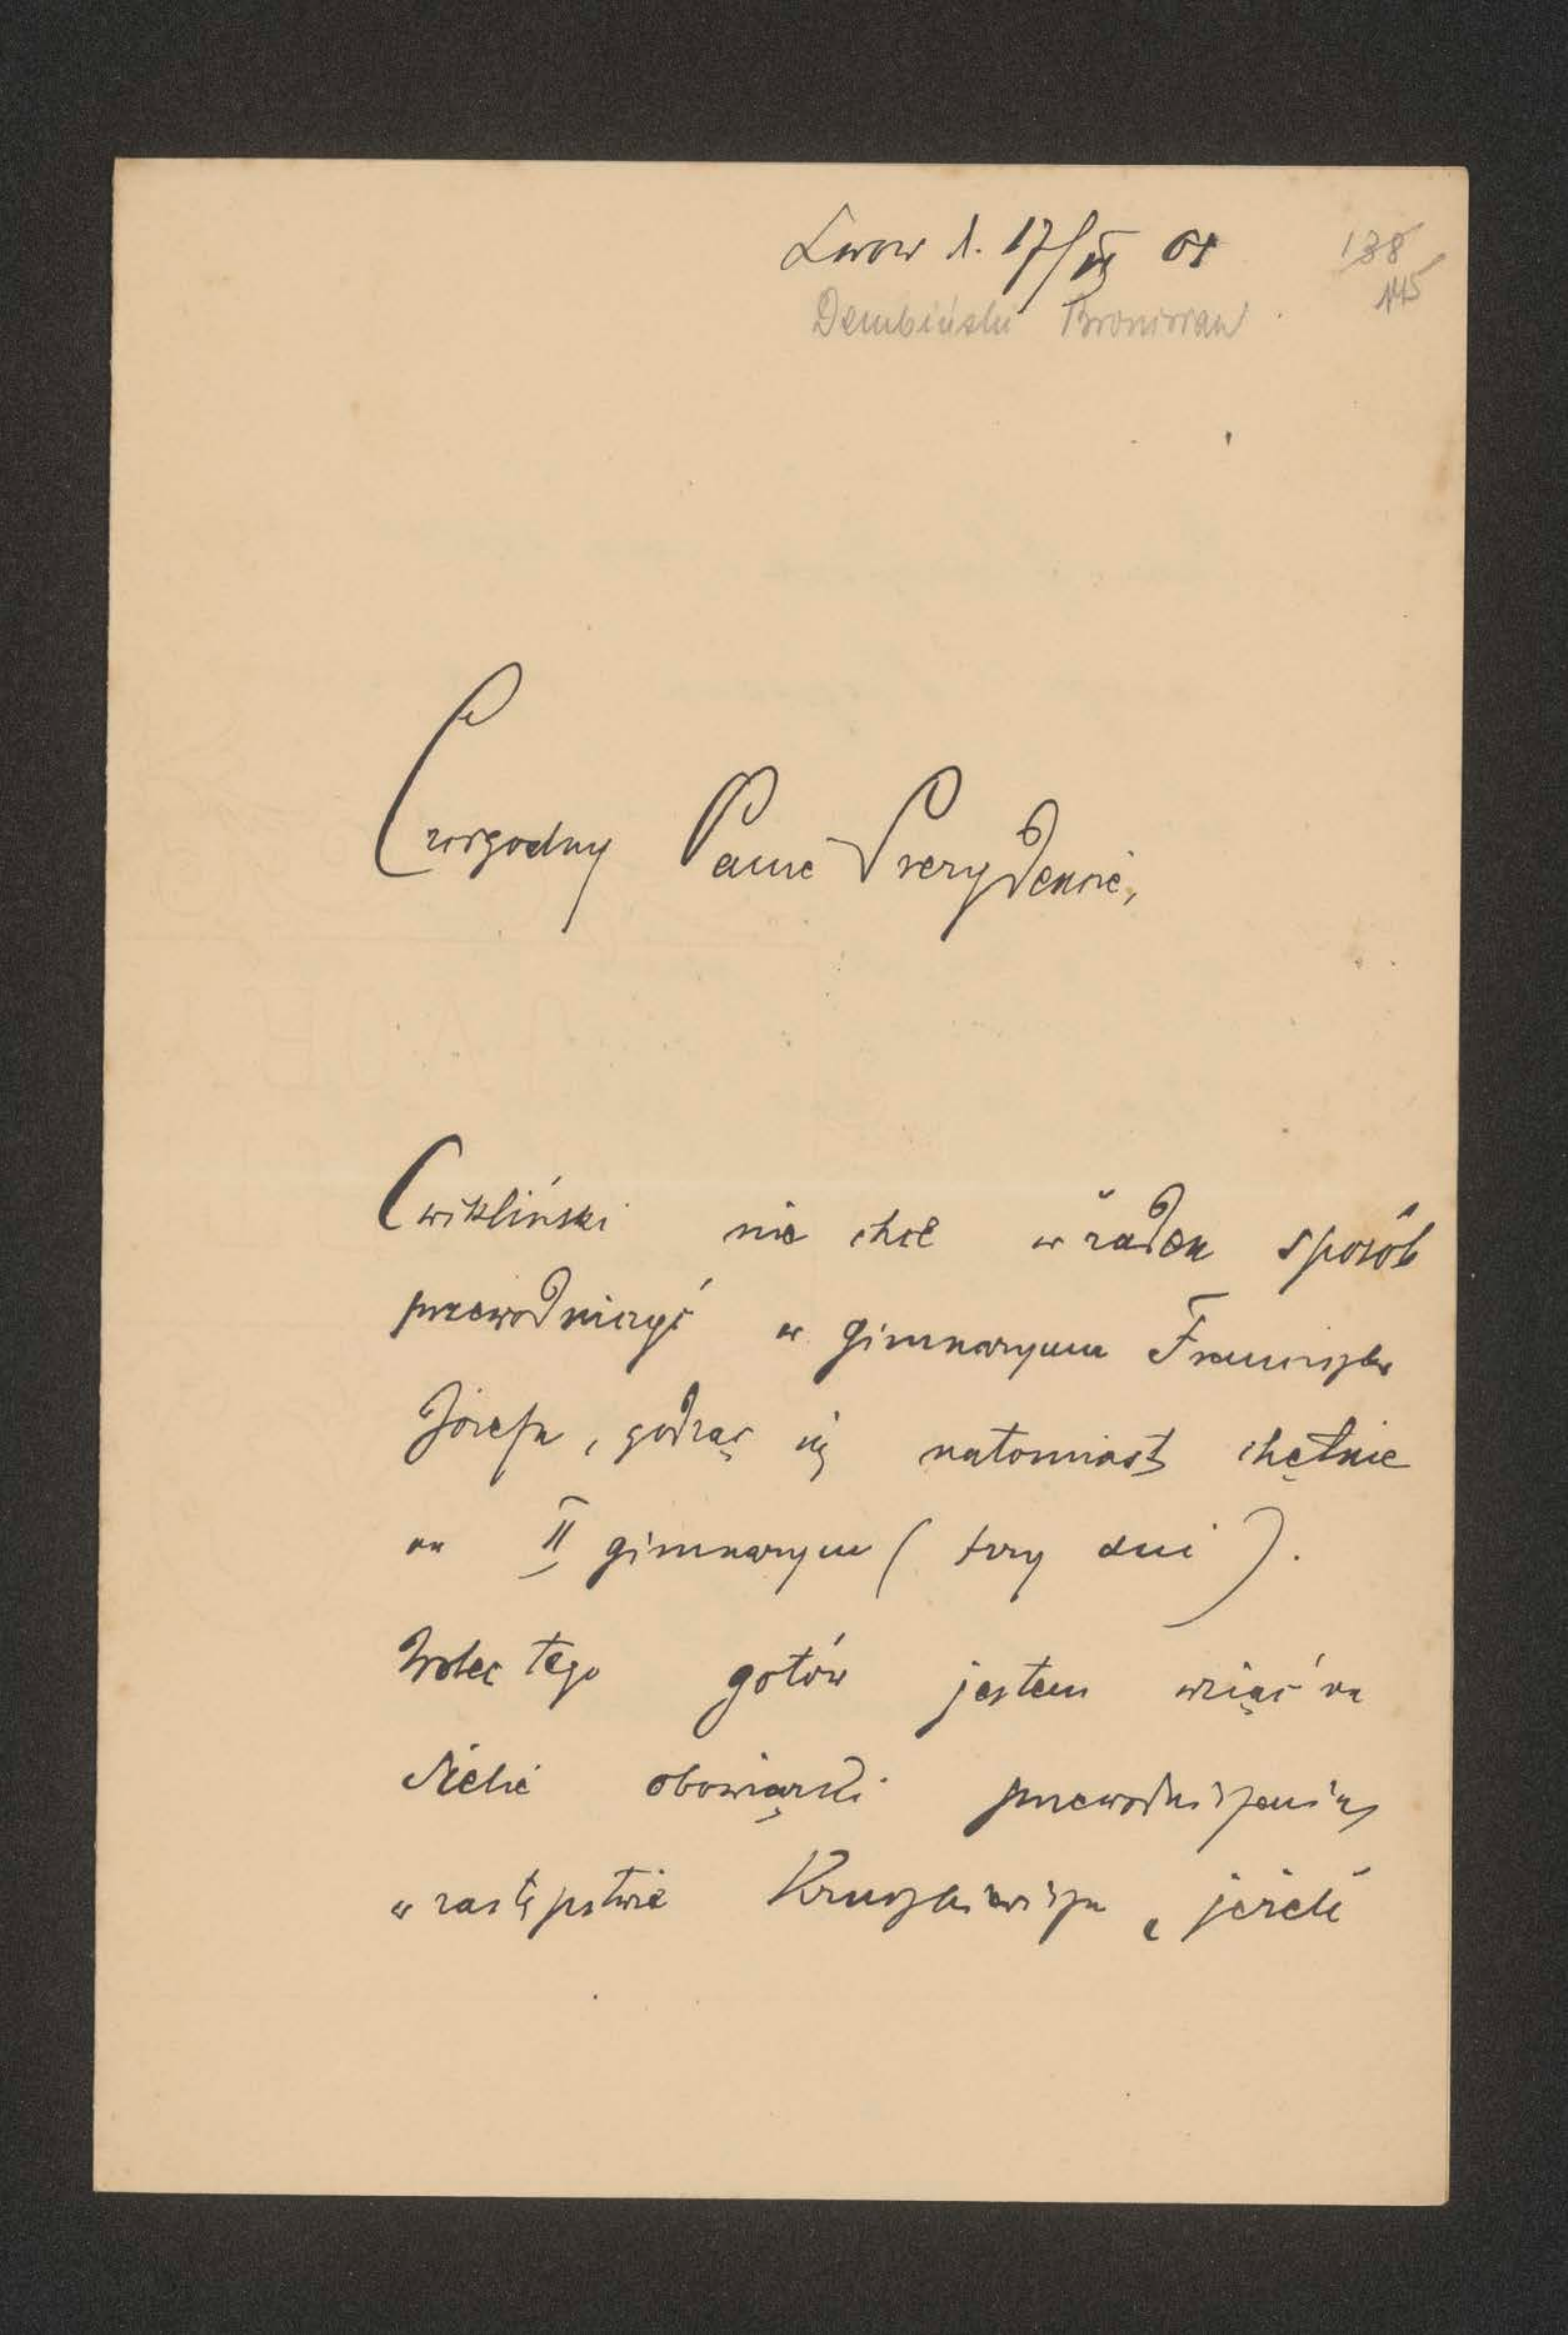 Lwow d. 17/VI 01
138
145
Dembiński Bronisław
Czcigodny Panie Prezydencie,
Cwikliński nie chce w żaden sposób
przewodniczyć w gimnazyum Franciszka
Józefa, godząc się natomiast chętnie
na II gimnazyum ( trzy dni ).
Wobec tego gotów jestem wziąć na
siebie obowiązki przewodniczenia
w zastępstwie Kruszkiewicza, jeżeli